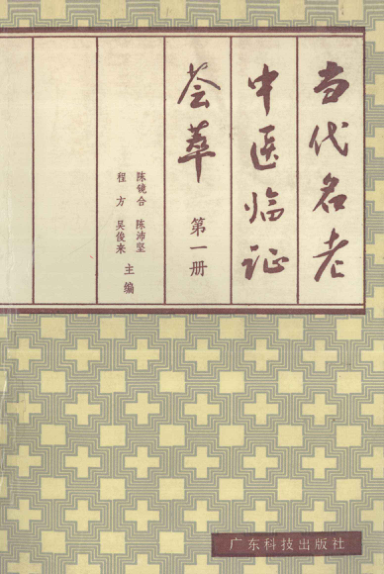 当代名老
中医临证
荟萃 第一册
陈镜合 陈沛坚
程方 吴俊来 主编
广东科技出版社